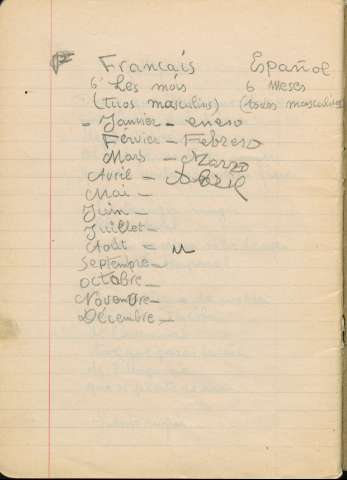 Français Español
6° Les mois 6 Meses
(tuos masculins) (todos masculinos)
- Janvier - enero
Férvier - Febrero
Mars - Marzo
Avril - Abril
Mai -
Juin -
Juillet -
Août - M
Septembre -
Octobre -
Novembre -
Décembre -